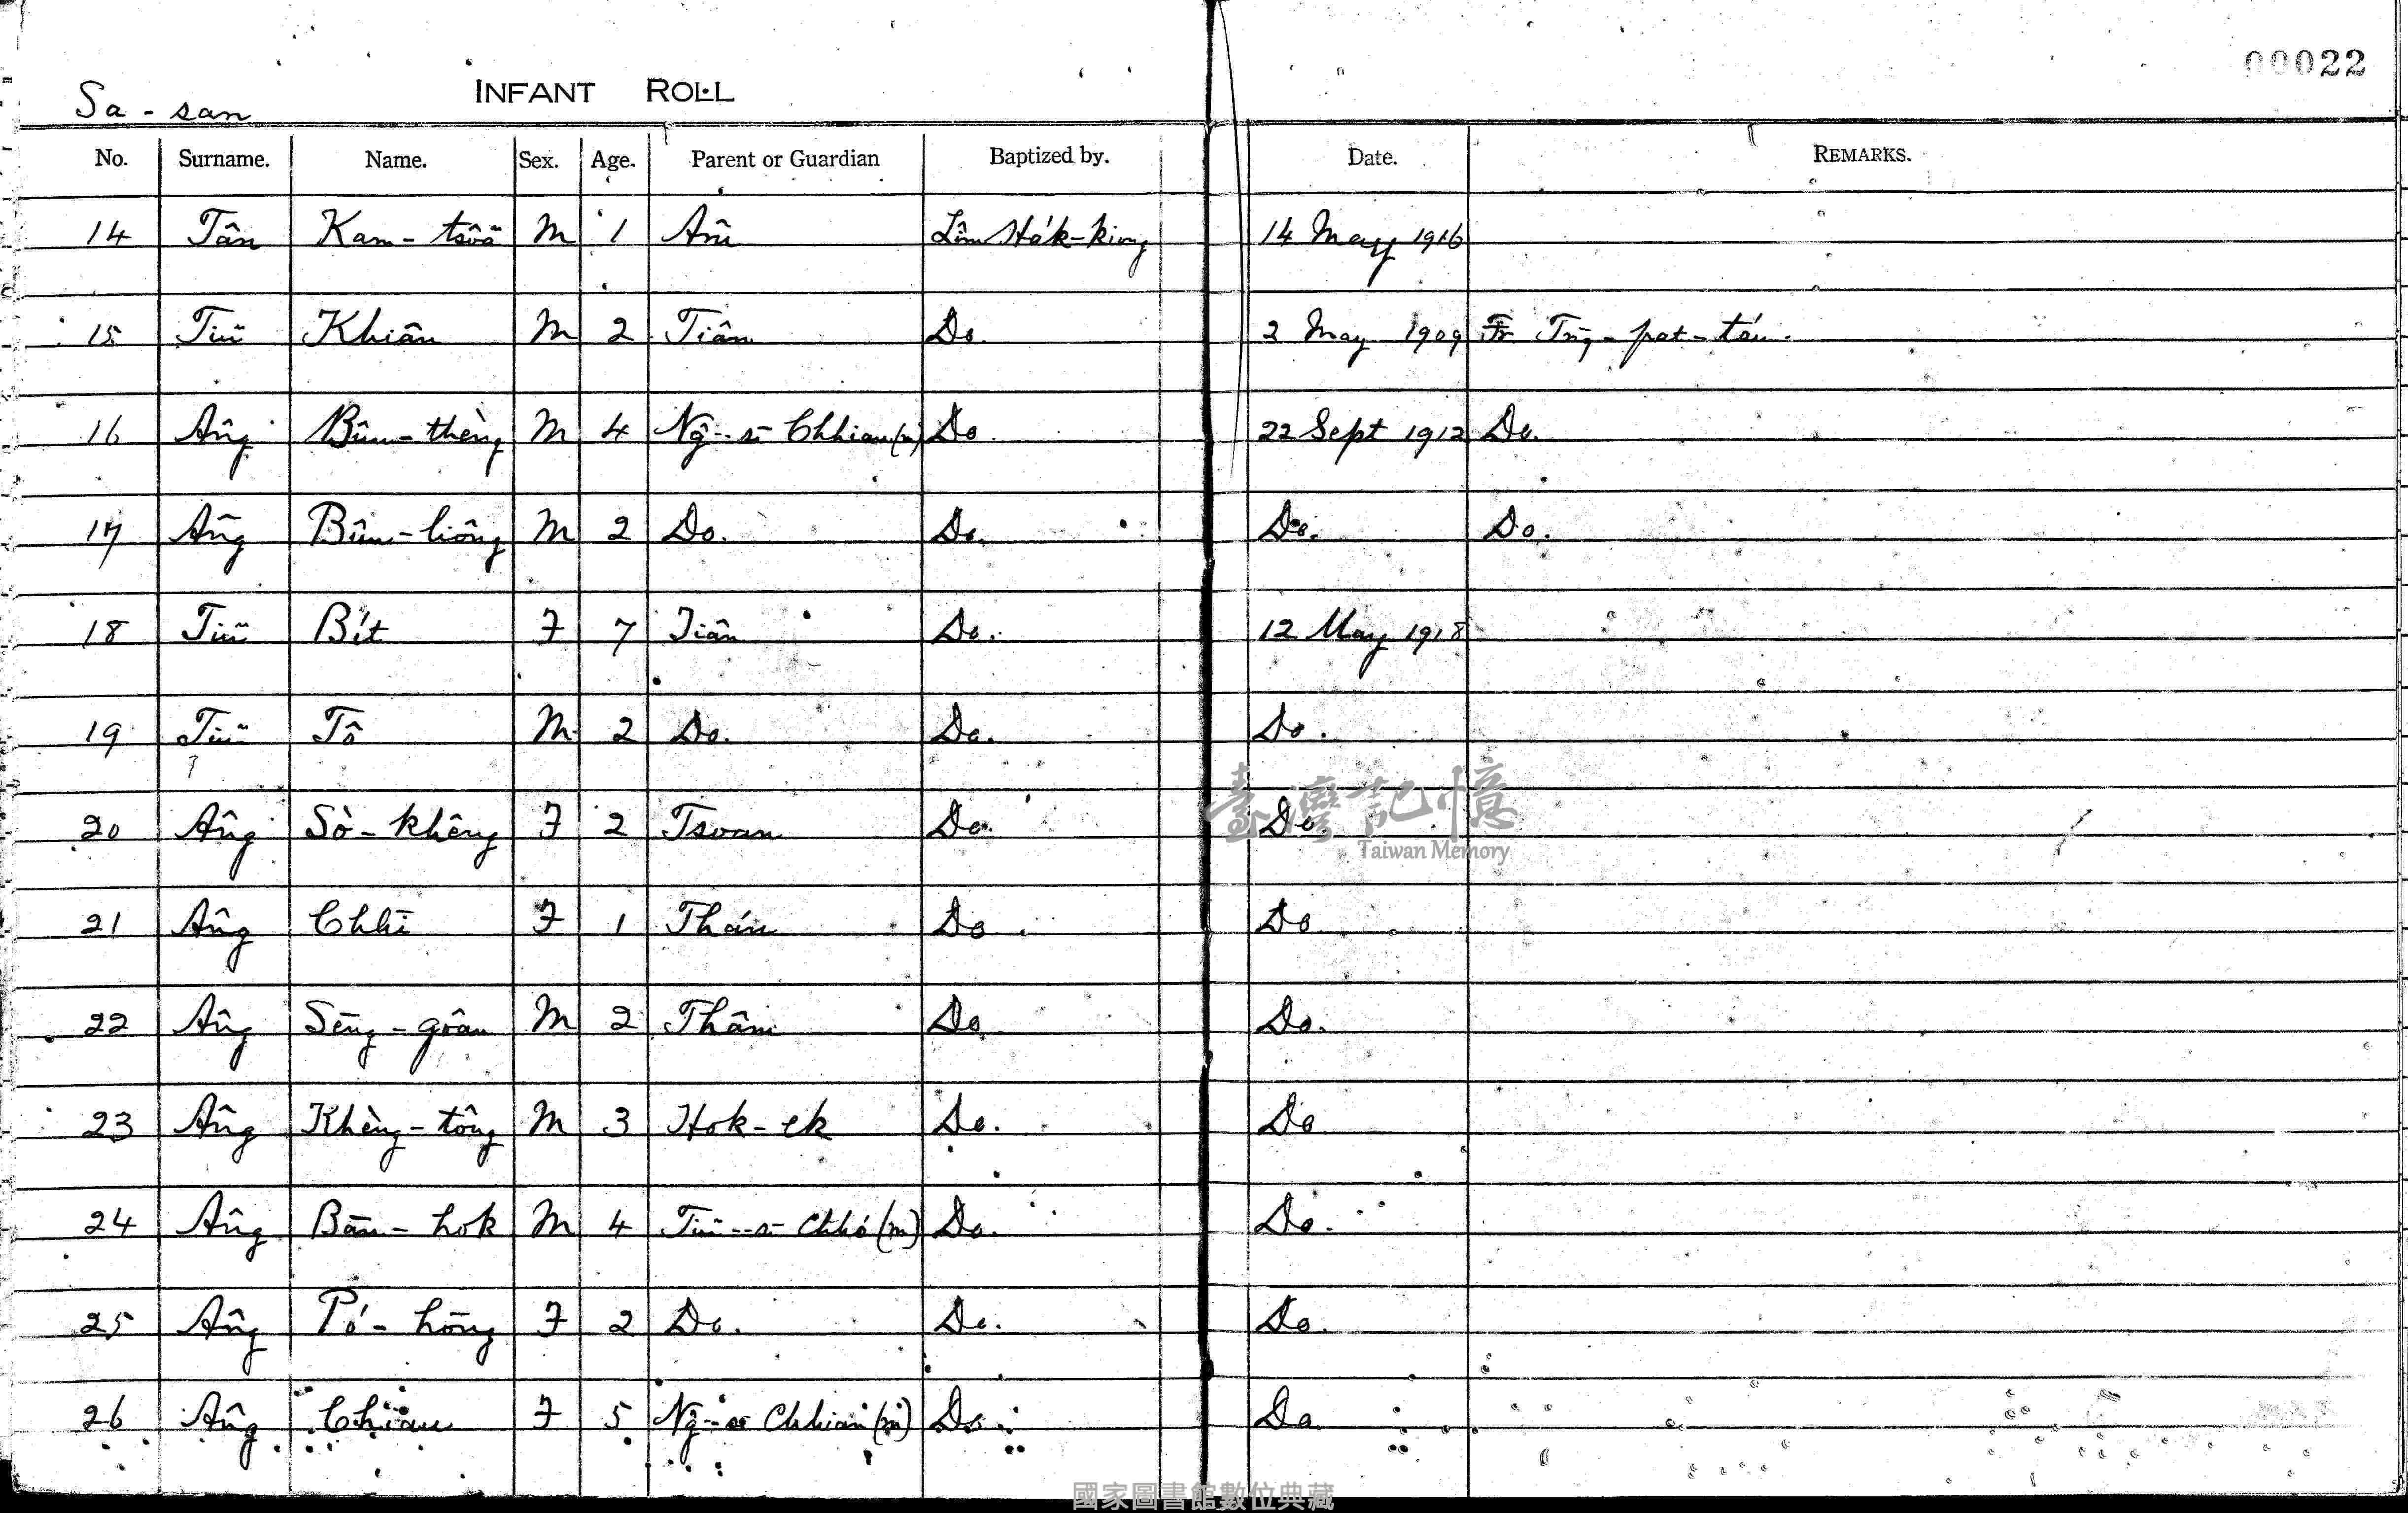 00022
INFANT ROLL
Sa-san
No. Surname. Name. Sex. Age. Parent or Guardian Baptized by. Date. REMARKS.
14 Tân Kam- M 1 Lîm Ha̍k-kiong 14 May 1916
15 Tiuⁿ Khiân M 2 Tiân Do 2 May 1909 Fr Tn̂g-pat-táu.
16 Âng Bûn-thèng M 4 N̂g--sī Chhian (m) Do. 22 Sept 1912 Do.
17 Âng Bûn-liông M 2 Do. Do. Do. Do.
18 Tiuⁿ Bít F 7 Tiân Do. 12 May 1918
19 Tiuⁿ Tô M 2 Do. Do. Do.
20 Âng Sò-khêng F 2 Tsoan Do. Do.
21 Âng Chhī F 1 Thán Do. Do
22 Âng Sēng-goân M 2 Thâm Do Do.
23 Âng Khèng-tông M 3 Hok-ek Do. Do
24 Âng Bān-hok M 4 Tiuⁿ--sī Chhó (m) Do. Do.
25 Âng Pó-hōng F 2 Do. Do. Do.
26 Âng F 5 N̂g--sī Chhian (m) Do. Do.
臺灣記憶
Taiwan Memory
國家圖書館數位典藏